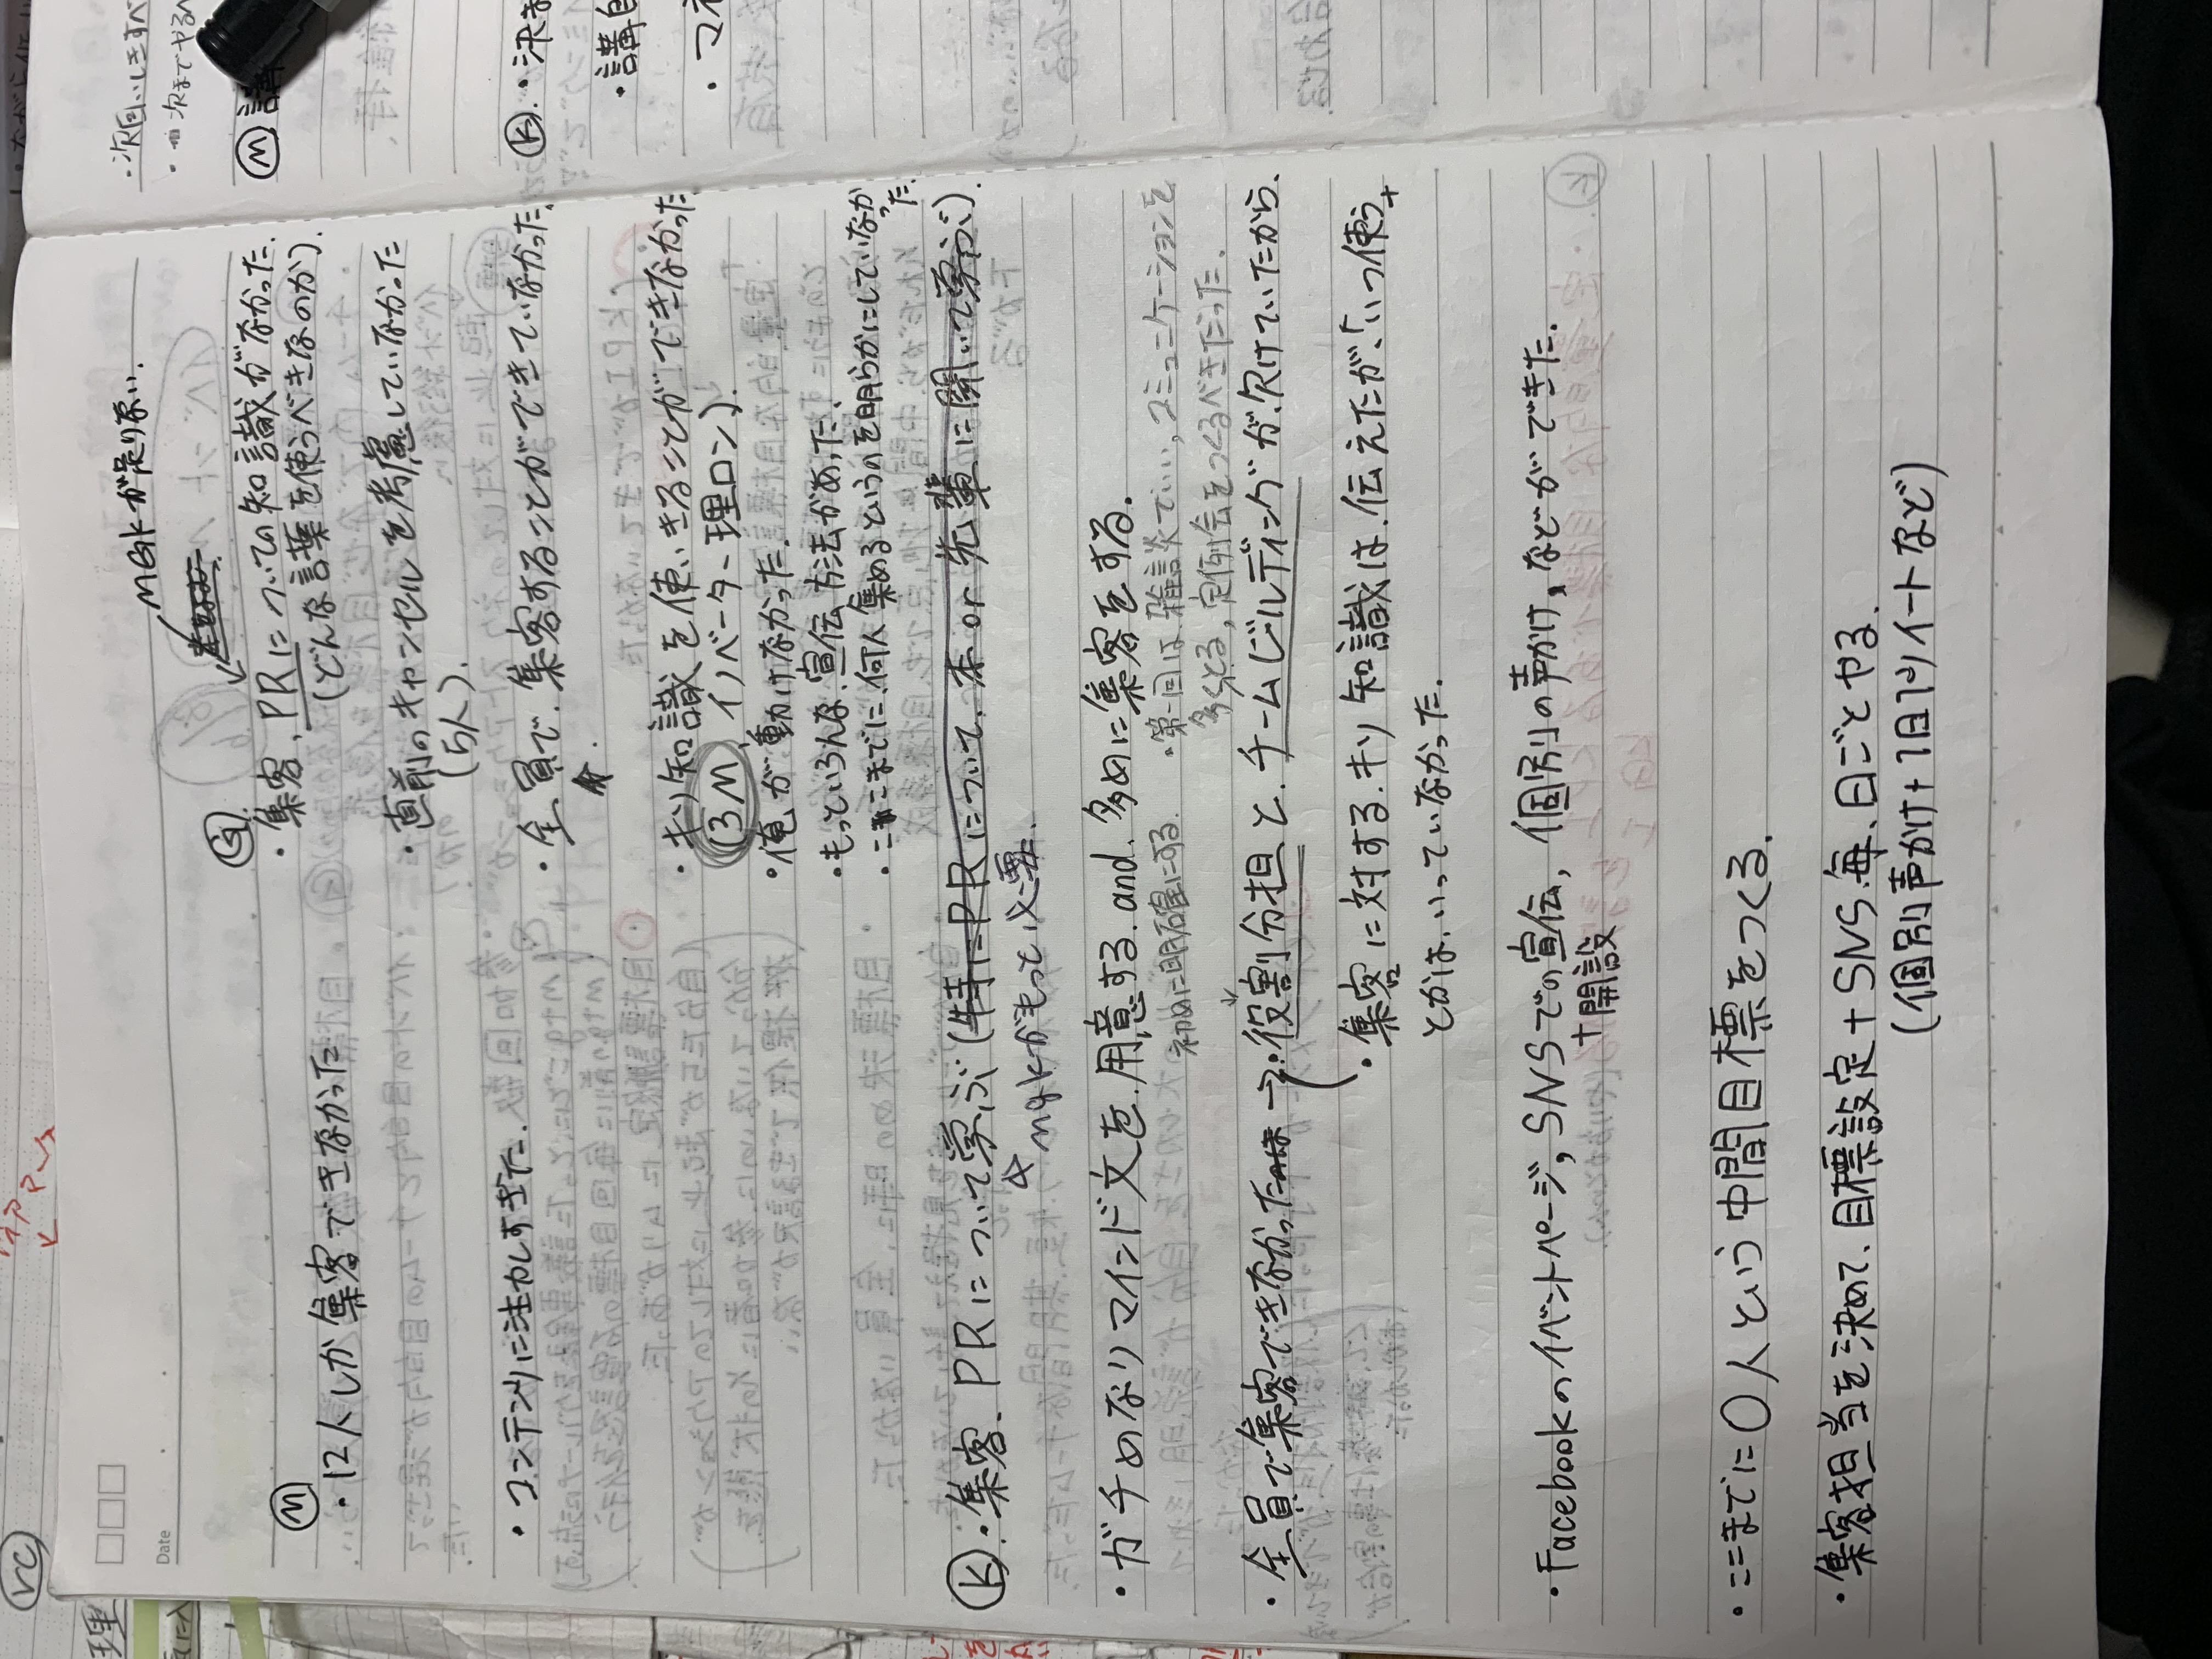 vc
理
Date
MGKが足りない.
Ⓖ
・集客、PRについての知識がなかった.
(どんな言葉を使うべきなのか).
Ⓜ
・12人しか集客できなかった
・直前のキャンセルを考慮していなかった
(5人).
・コンテンツに注力しすぎた.
・全員で、集客することができていなかった.
・キソ知識を使いきることができなかった
(3M、イノベーター理ロン).
・俺が動けなかった.
・もっといろんな宣伝方法があった.
・ここまでに、何人集めるというのを明らかにしていなかった.
Ⓚ.・集客、PRについて学ぶ(特にPRについて、本or先輩に聞いて学ぶ).
mgkがもっと必要.
・ガチめなリマインド文を、用意する、and、多めに集客をする.
初めに明確にする.
・第一回は、雑談でいい, コミュニケーションを
多くとる, 定例会をつくるべきだった.
・全員で集客できなかった→・役割分担と、チームビルディングが、欠けていたから.
・集客に対する、キソ知識は、伝えたが、「いつ使う」
とかは、いっていなかった.
・Facebookのイベントページ, SNSでの宣伝, 個別の声かけ, などができた.
+開設
・ここまでに〇人という中間目標をつくる.
・集客担当を決めて、目標設定+SNS、毎、日ごとやる.
(個別声かけ+1日1ツイートなど)
・次回いしきすべ
・次までやるべ
Ⓜ 講
Ⓚ.・決ま
・講自
・マネ